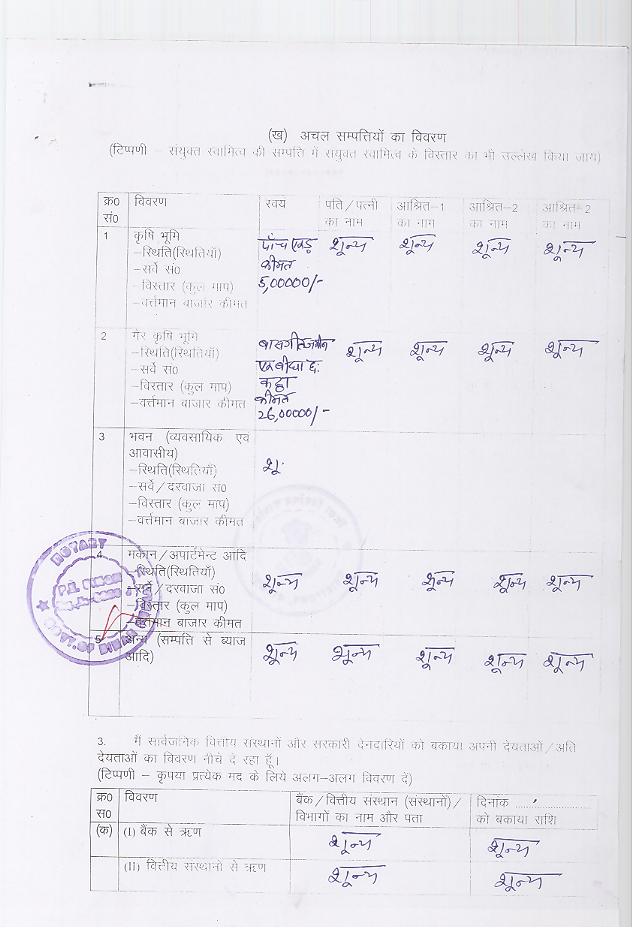 (ख) अचल सम्पत्तियों का विवरण
(टिप्पणी – संयुक्त स्वामित्व की सम्पति में संयुक्त स्वामित्व के विस्तार का भी उल्लेख किया जाय)
क्र0 सं0 विवरण स्वयं पति/पत्नी का नाम आश्रित–1 का नाम आश्रित–2 का नाम आश्रित–2 का नाम
1 कृषि भूमि पाँच एकड़ शून्य शून्य शून्य शून्य
–स्थिति(स्थितियाँ) कीमत
–सर्वे सं0 5,00000/-
–विस्तार (कुल माप)
–वर्त्तमान बाजार कीमत
2 गैर कृषि भूमि शून्य शून्य शून्य शून्य
–स्थिति(स्थितियाँ)
–सर्वे सं0 कट्ठा
–विस्तार (कुल माप) कीमत
–वर्त्तमान बाजार कीमत 26,00000/-
3 भवन (व्यवसायिक एवं
आवासीय) शू.
–स्थिति(स्थितियाँ)
–सर्वे/दरवाजा सं0
–विस्तार (कुल माप)
–वर्त्तमान बाजार कीमत
4 मकान/अपार्टमेन्ट आदि
–स्थिति(स्थितियाँ) शून्य शून्य शून्य शून्य शून्य
–सर्वे/दरवाजा सं0
–विस्तार (कुल माप)
–वर्त्तमान बाजार कीमत
5 अन्य (सम्पति से ब्याज शून्य शून्य शून्य शून्य शून्य
आदि)
NOTARY
GOVT. OF BIHAR
3. मैं सार्वजनिक वित्तीय संस्थानों और सरकारी देनदारियों को बकाया अपनी देयताओं/अति
देयताओं का विवरण नीचे दे रहा हूँ।
(टिप्पणी – कृपया प्रत्येक मद के लिये अलग–अलग विवरण दें)
क्र0 सं0 विवरण बैंक/वित्तीय संस्थान (संस्थानों)/ विभागों का नाम और पता दिनांक .................. को बकाया राशि
(क) (I) बैंक से ऋण शून्य शून्य
(II) वित्तीय संस्थानों से ऋण शून्य शून्य